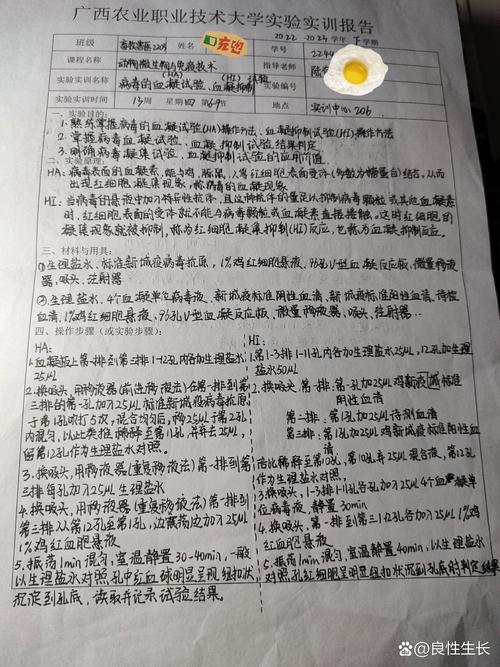 广西农业职业技术大学实验实训报告
2022-2023学年 下 学期
班级
学号 2244
课程名称 动物微生物与免疫技术
指导老师 陆
实验实训名称 病毒的血凝试验、血凝抑制试验
(HA) (HI)
实验编号
实验实训时间 13周 星期四 6-9节
地点 实训中心206
一、实验目的:
1. 熟练掌握病毒的血凝试验(HA)操作方法、血凝抑制试验(HI)操作方法
2. 掌握病毒血凝试验、血凝抑制试验结果判定
3. 明确病毒血凝集试验、血凝抑制试验的应用价值
二、实验原理:
HA: 病毒表面的血凝素,能与鸡、豚鼠、人等红细胞表面受体(多数为糖蛋白)结合,从而
出现红细胞凝集现象,称病毒的血凝现象
HI: 当病毒的悬液中加入特异性抗体,且这种抗体的量足以抑制病毒颗粒或其血凝素
时,红细胞表面的受体就不能与病毒颗粒或血凝素直接接触。这时红细胞的
凝集现象就被抑制,称为红细胞凝集抑制(HI)反应,也称为血凝抑制反应。
三、材料与用具:
①生理盐水、标准新城疫病毒抗原,1%鸡红细胞悬液、96孔V型血凝反应板、微量移液
器、吸头、注射器
②生理盐水、4个血凝单位病毒液、新城疫标准阴性血清、新城疫标准阳性血清、待检
血清、1%鸡红细胞悬液、96孔V型血凝反应板、微量移液器、吸头、注射器…
四、操作步骤(或实验步骤):
HA:
1. 血凝板上第一排到第三排1-12孔内各加生理盐水
25μL
2. 换吸头,用移液器(前进移液法)在第一排到第
三排的第一孔加入25μL标准新城疫病毒抗原
于第1孔吹打5次,混合均匀后,移25μL于第2孔
内混匀,以此类推稀释至第11孔,并弃去25μL,
留第12孔作为生理盐水对照。
3. 换吸头,用移液器(重复移液法)第一排到第
三排每孔加入25μL生理盐水
4. 换吸头,用移液器(重复移液法)第一排到
第三排从第12孔至第1孔,边震荡边加入25μL
1%鸡红血胞悬液
5. 振荡1min混匀,室温静置30-40min,一般
以生理盐水对照孔中红血球明显呈现纽扣状
沉淀到孔底,读取并记录试验结果。
HI:
1. 第1-3排1-11孔内各加生理盐水25μL,12孔加生理
盐水50μL
2. 换吸头 第一排:第1孔加25μL鸡新城疫标准
阴性血清
第二排:第1孔加25μL待测血清
第三排:第1孔加25μL鸡新城疫标准阳性血
清
倍比稀释至第10孔,第10孔弃25μL混合液,第12孔
作为生理盐水对照。
3. 换吸头,1-3排1-11孔各孔加入25μL 4个血凝单
位病毒液,静置30min
4. 换吸头,第一排到第三排1-12孔各加入25μL 1%鸡
红血胞悬液
5. 振荡1min混匀,室温静置40min,以生理盐水
对照孔红细胞呈明显纽扣状沉到孔底时判定结果
良性生长